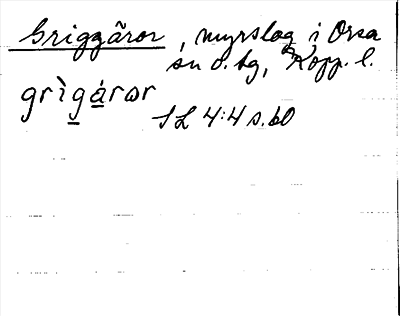 Griggåror, myrslog i Orsa
sn o. tg, Kopp. l.
grìg̲á̲rωr
SL 4:4 s. 60